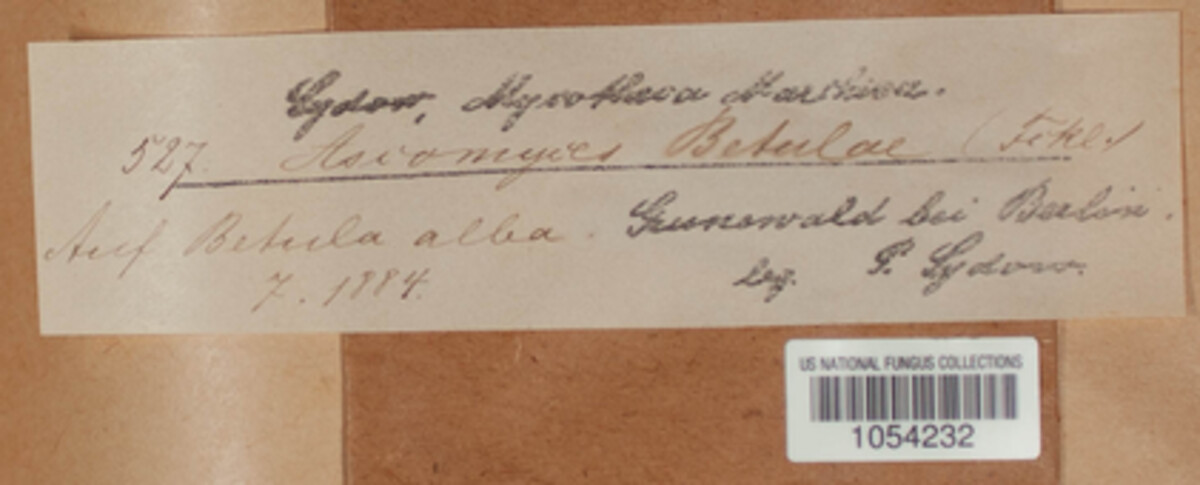 Sydow, Mycotheca Marchica.
527. Ascomyces Betulae (Fckl.)
Auf Betula alba. Grunewald bei Berlin.
7. 1884. leg. P. Sydow.
US NATIONAL FUNGUS COLLECTIONS
1054232